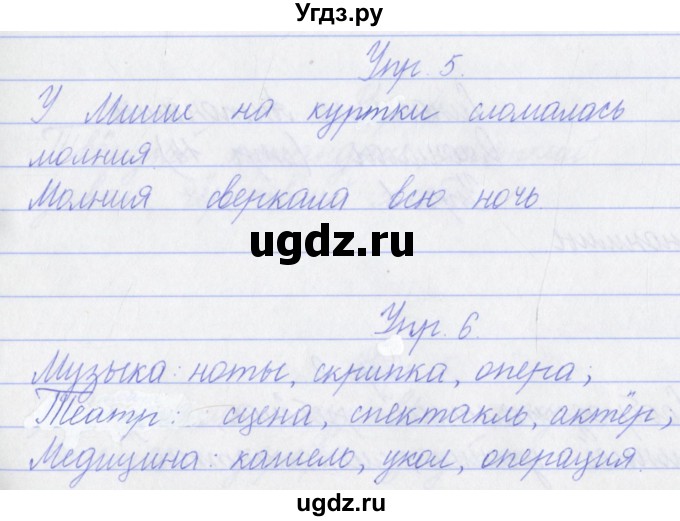 Угдз.ру
Упр. 5.
У Миши на куртки сломалась
молния.
Молния сверкала всю ночь.
ugdz.ru
Упр. 6.
Музыка: ноты, скрипка, опера;
Театр: сцена, спектакль, актёр;
Медицина: кашель, укол, операция.
ugdz.ru